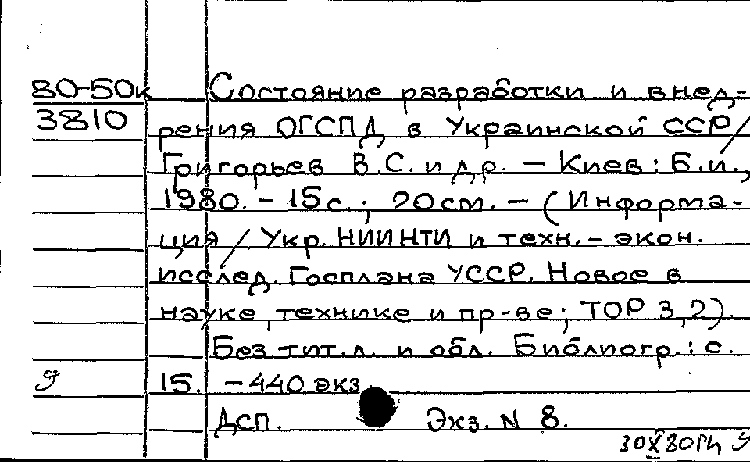 80-50к Состояние разработки и внед-
3810 рения ОГСПД в Украинской ССР/
Григорьев В.С. и др. — Киев: Б.и.,
1980. - 15с.; 20см. — (Информа-
ция / Укр. НИИНТИ и техн.- экон.
исслед. Госплана УССР. Новое в
науке, технике и пр-ве; ТОР 3,2).
Без тит.л. и обл. Библиогр.: с.
15. - 440 экз.
Дсп. Экз. N 8.